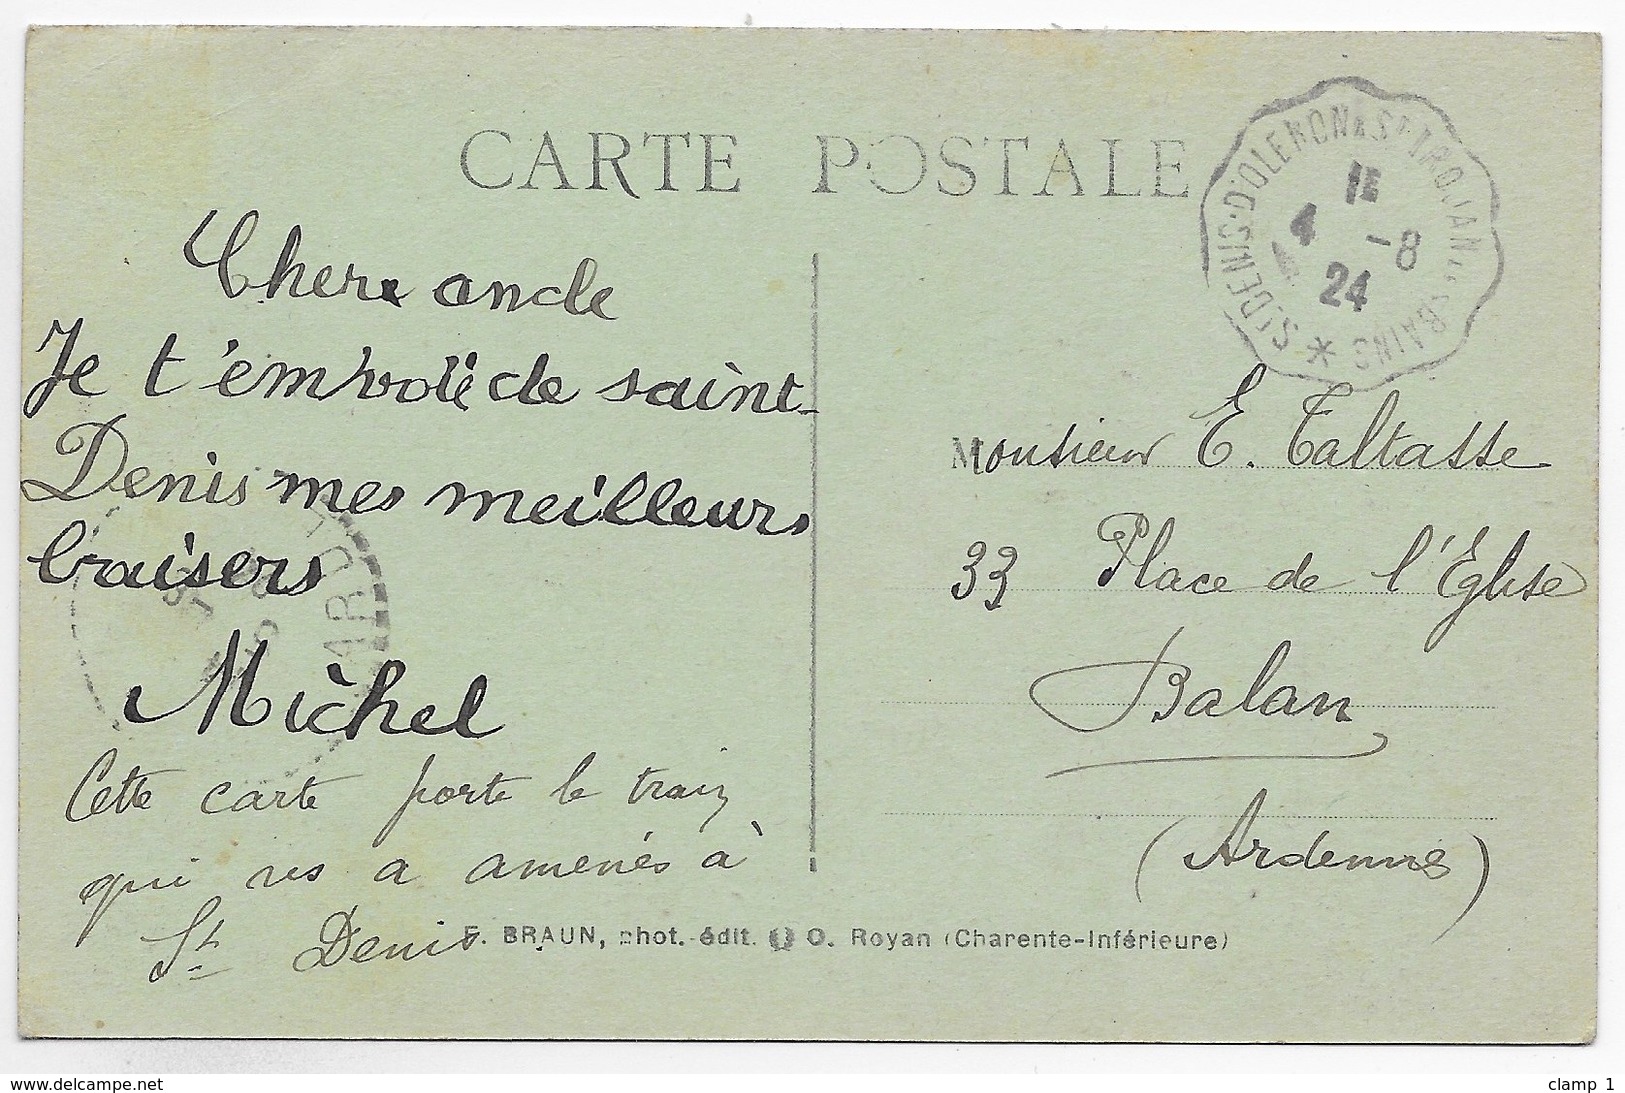 CARTE POSTALE
ST DENIS-D'OLERON A ST TROJAN LES BAINS *
4 -8
24
Cher oncle
Je t'emvoie de saint-
Denis mes meilleurs
baisers
Michel
Cette carte porte le train
qui ns a amenés à
St Denis
Monsieur E. Taltasse
33 Place de l'Eglise
Balan
(Ardennes)
F. BRAUN, phot.-édit. O. Royan (Charente-Inférieure)
clamp 1